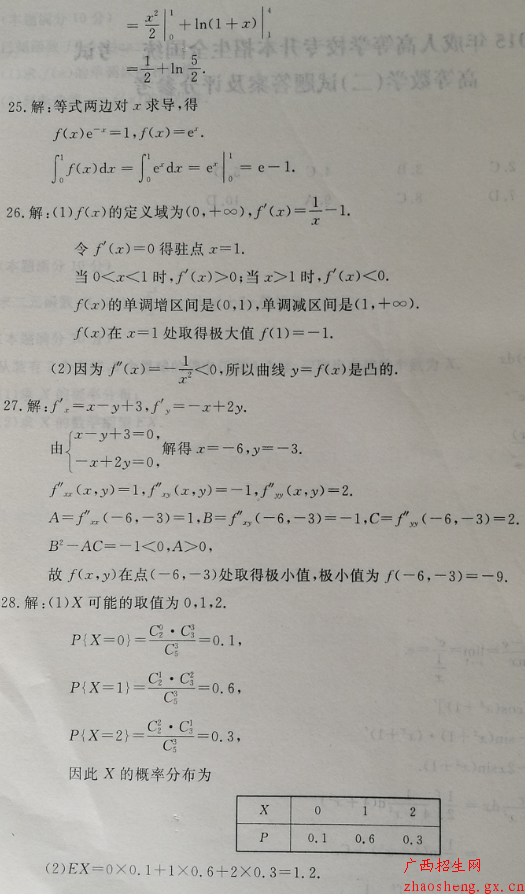 = x²/2 |₀¹ + ln(1+x) |₁⁴
= 1/2 + ln 5/2.
25.解:等式两边对 x 求导,得
f(x)e⁻ˣ=1,f(x)=eˣ.
∫₀¹ f(x)dx=∫₀¹ eˣdx=eˣ|₀¹=e-1.
26.解:(1)f(x)的定义域为(0,+∞),f′(x)=1/x-1.
令 f′(x)=0得驻点 x=1.
当 0<x<1 时,f′(x)>0;当 x>1 时,f′(x)<0.
f(x)的单调增区间是(0,1),单调减区间是(1,+∞).
f(x)在 x=1 处取得极大值 f(1)=-1.
(2)因为 f″(x)=-1/x²<0,所以曲线 y=f(x)是凸的.
27.解:f′ₓ=x-y+3,f′ᵧ=-x+2y.
由{x-y+3=0, -x+2y=0, 解得 x=-6,y=-3.
f″ₓₓ(x,y)=1,f″ₓᵧ(x,y)=-1,f″ᵧᵧ(x,y)=2.
A=f″ₓₓ(-6,-3)=1,B=f″ₓᵧ(-6,-3)=-1,C=f″ᵧᵧ(-6,-3)=2.
B²-AC=-1<0,A>0,
故 f(x,y)在点(-6,-3)处取得极小值,极小值为 f(-6,-3)=-9.
28.解:(1)X 可能的取值为 0,1,2.
P{X=0}=C₂⁰·C₃³/C₅³=0.1,
P{X=1}=C₂¹·C₃²/C₅³=0.6,
P{X=2}=C₂²·C₃¹/C₅³=0.3,
因此 X 的概率分布为
X 0 1 2
P 0.1 0.6 0.3
(2)EX=0×0.1+1×0.6+2×0.3=1.2.
广西招生网
zhaosheng.gx.cn